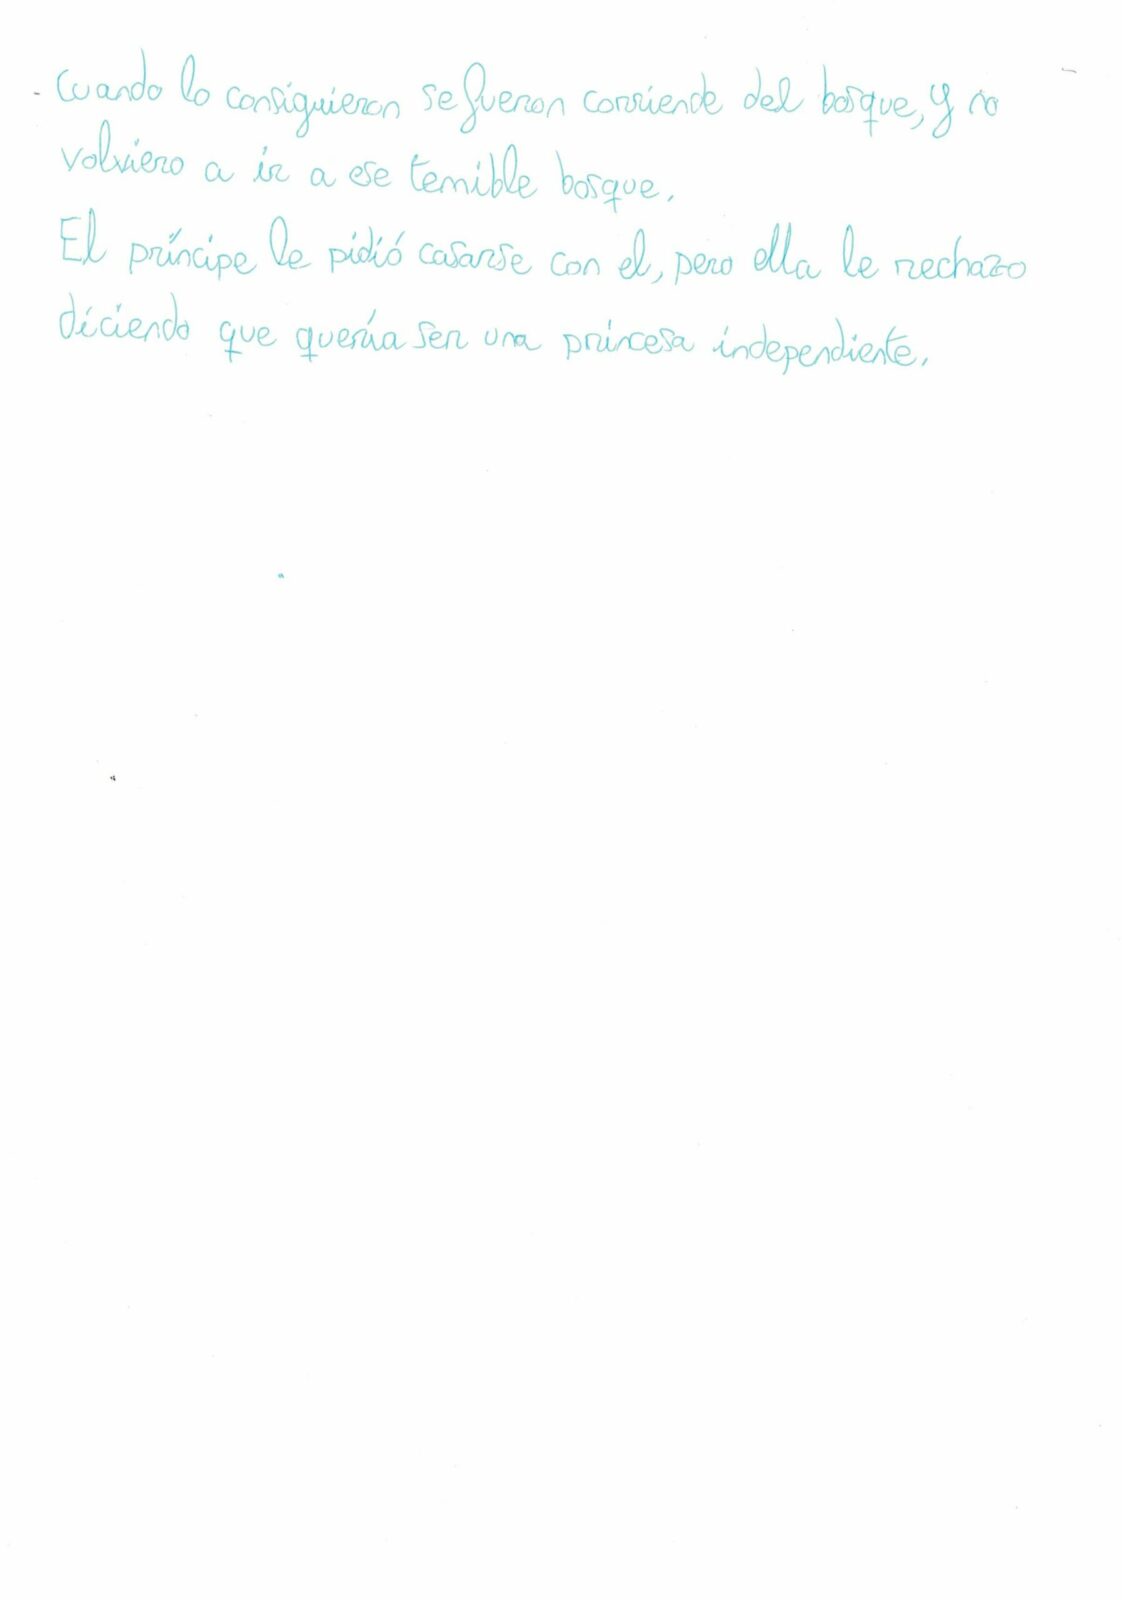 Cuando lo consiguieron se fueron corriende del bosque, y no
volviero a ir a ese temible bosque.
El príncipe le pidió casarse con el, pero ella le rechazo
diciendo que quería ser una princesa independiente.